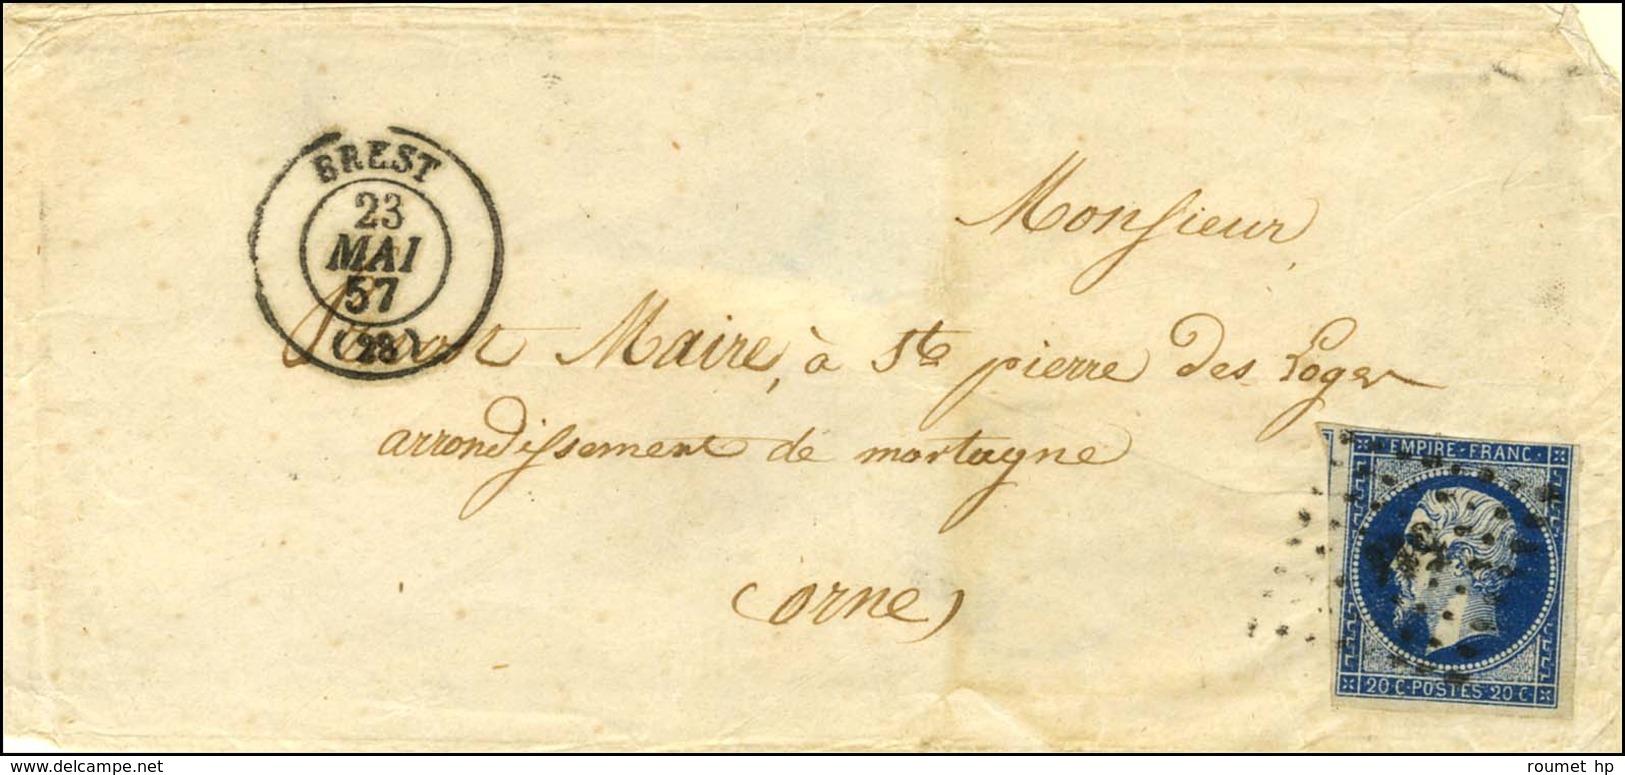 BREST
23
MAI
57
(28)
Monsieur
Maire, à Ste pierre des Loges
arrondissement de mortagne
(orne)
EMPIRE·FRANC·
20 C·POSTES 20 C
delcampe.net
roumet hp